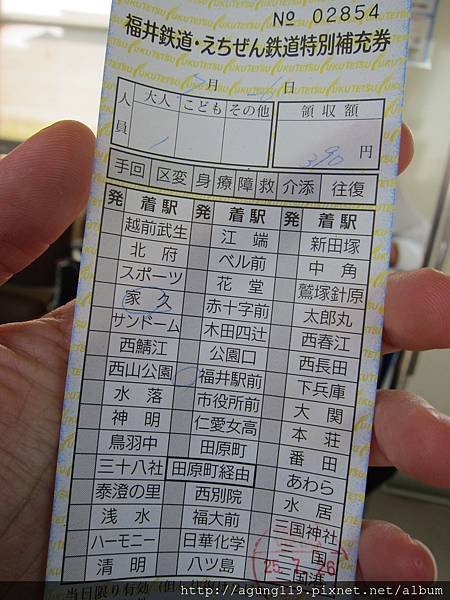 № 02854
福井鉄道・えちぜん鉄道特別補充券
月 日
人員 大人 こども その他 領収額
1 390 円
手回 区変 身 療 障 救 介添 往復
発 着駅 発 着駅 発 着駅
越前武生 江端 新田塚
北府 ベル前 中角
スポーツ 花堂 鷲塚針原
家久 赤十字前 太郎丸
サンドーム 木田四辻 西春江
西鯖江 公園口 西長田
西山公園 福井駅前 下兵庫
水落 市役所前 大関
神明 仁愛女高 本荘
鳥羽中 田原町 番田
三十八社 田原町経由 あわら
泰澄の里 西別院 水居
浅水 福大前 三国神社
ハーモニー 日華化学 三国
清明 八ツ島 三国港
25.7.26
当日限り有効
http://agung119.pixnet.net/album